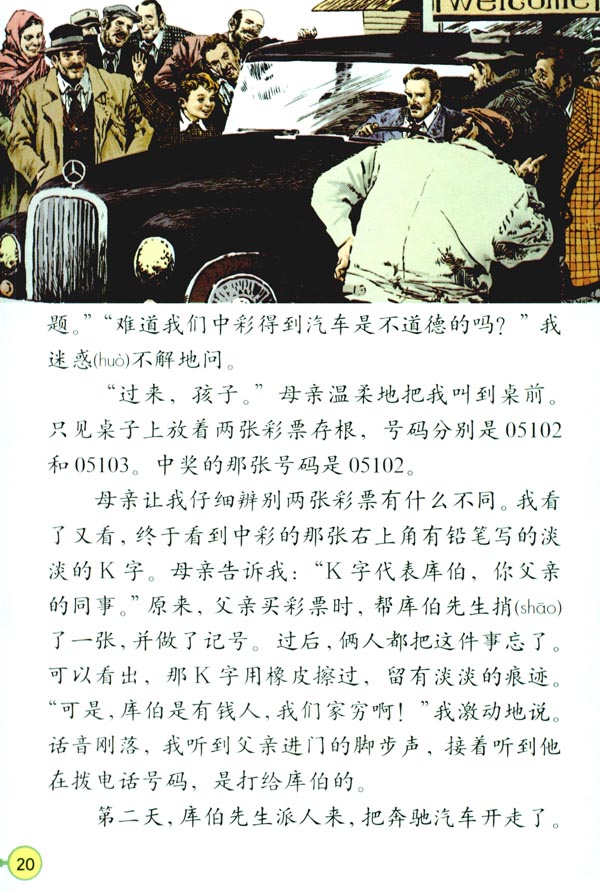 Welcome!
题。”“难道我们中彩得到汽车是不道德的吗？”我
迷惑(huò)不解地问。
“过来，孩子。”母亲温柔地把我叫到桌前。
只见桌子上放着两张彩票存根，号码分别是05102
和05103。中奖的那张号码是05102。
母亲让我仔细辨别两张彩票有什么不同。我看
了又看，终于看到中彩的那张右上角有铅笔写的淡
淡的K字。母亲告诉我：“K字代表库伯，你父亲
的同事。”原来，父亲买彩票时，帮库伯先生捎(shāo)
了一张，并做了记号。过后，俩人都把这件事忘了。
可以看出，那K字用橡皮擦过，留有淡淡的痕迹。
“可是，库伯是有钱人，我们家穷啊！”我激动地说。
话音刚落，我听到父亲进门的脚步声，接着听到他
在拨电话号码，是打给库伯的。
第二天，库伯先生派人来，把奔驰汽车开走了。
20